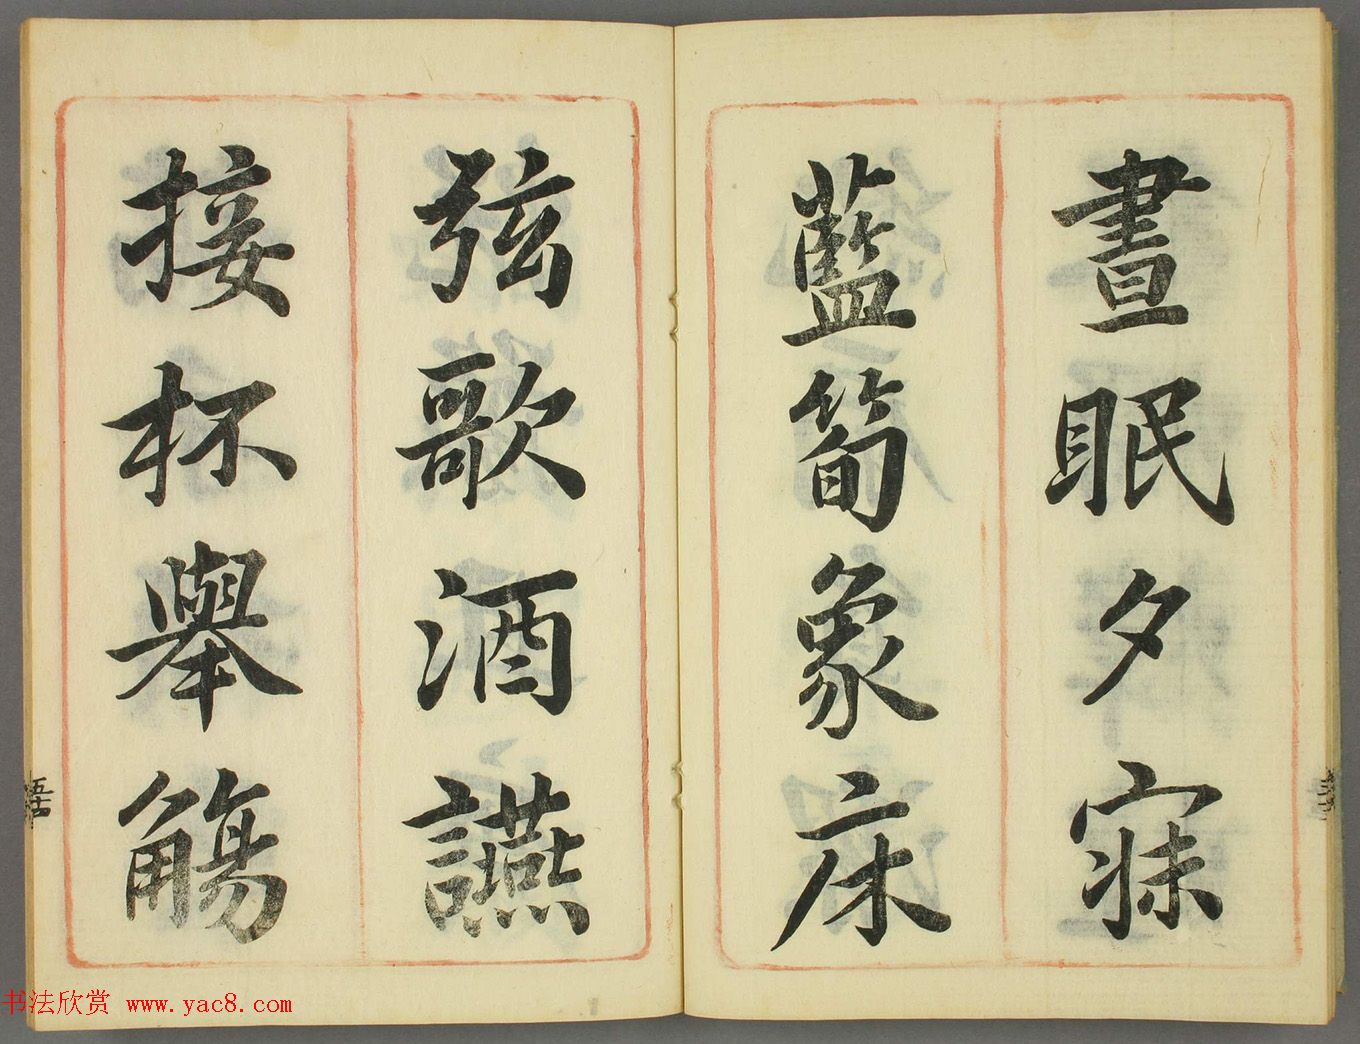 晝眠夕寐
藍筍象床
弦歌酒讌
接杯舉觴
五十
书法欣赏 www.yac8.com